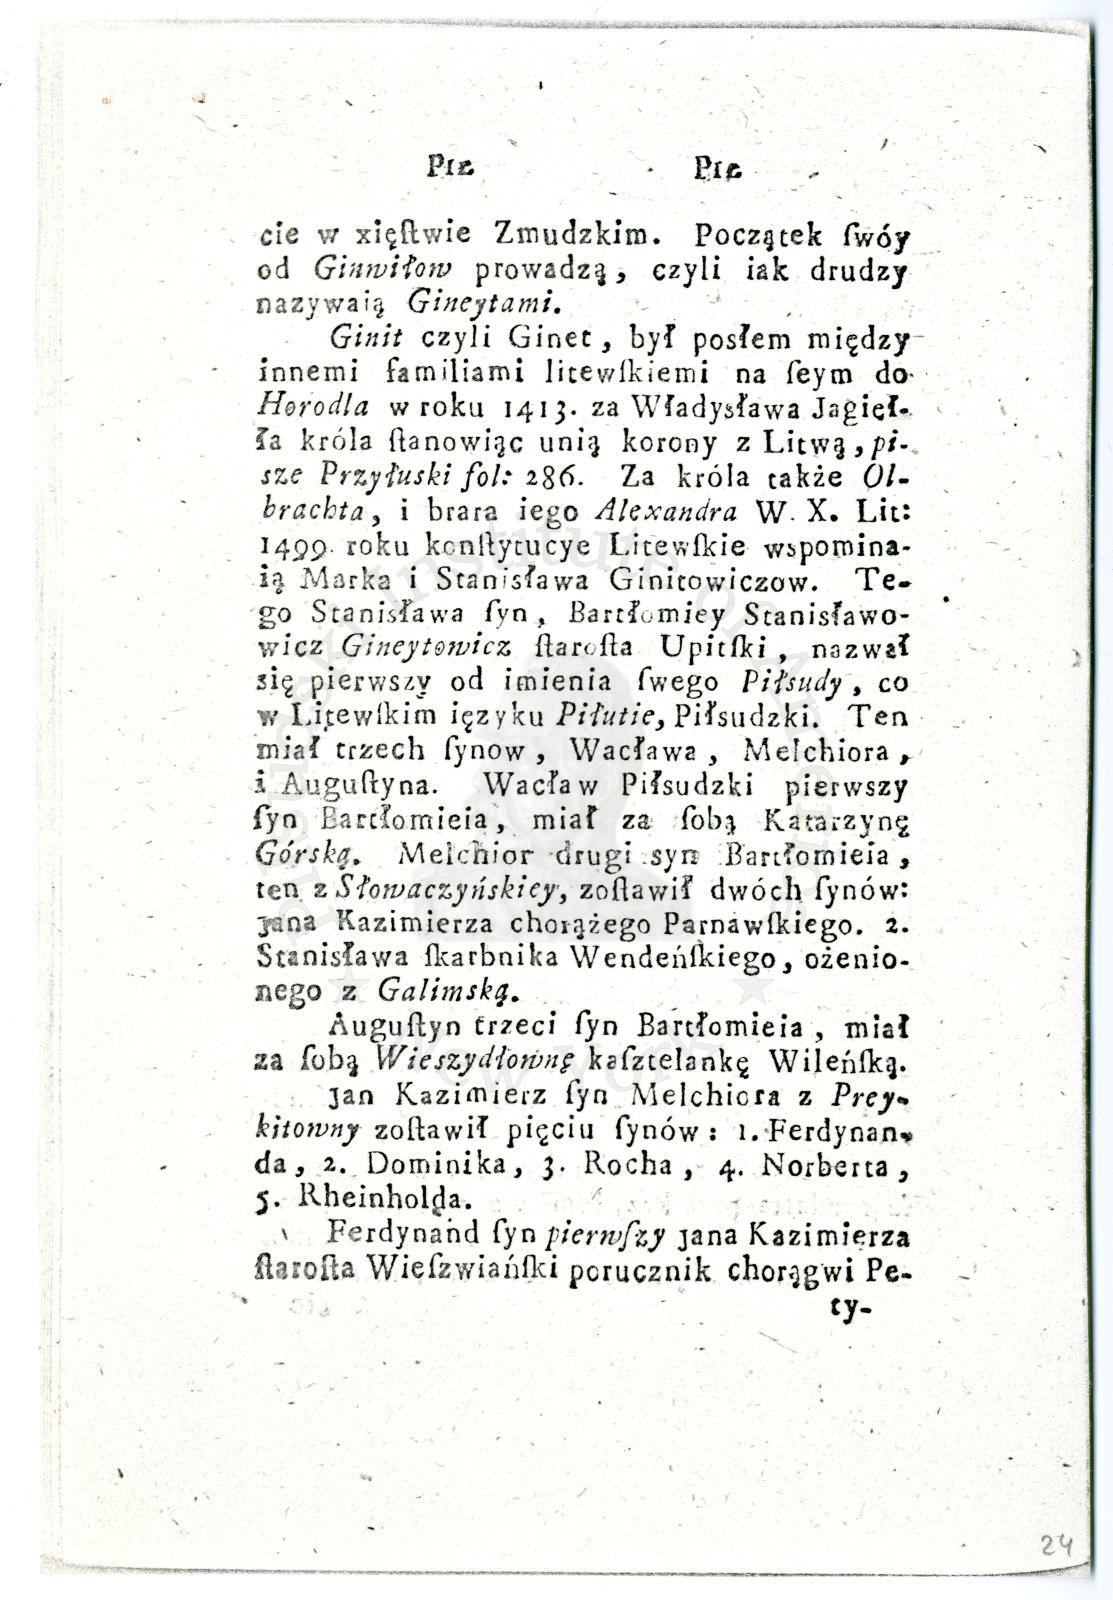 PIŁ PIŁ
cie w xięſtwie Zmudzkim. Początek ſwóy
od Ginwiłow prowadzą, czyli iak drudzy
nazywaią Gineytami.
Ginit czyli Ginet, był posłem między
innemi familiami litewſkiemi na ſeym do
Horodla w roku 1413. za Władysława Jagieł-
ła króla ſtanowiąc unią korony z Litwą, pi-
sze Przyłuski fol: 286. Za króla także Ol-
brachta, i brara iego Alexandra W. X. Lit:
1499. roku konſtytucye Litewſkie wspomina-
ią Marka i Stanisława Ginitowiczow. Te-
go Stanisława ſyn, Bartłomiey Stanisławo-
wicz Gineytowicz ſtaroſta Upitſki, nazwał
się pierwszy od imienia ſwego Piłsudy, co
w Litewſkim ięzyku Piłutie, Piłsudzki. Ten
miał trzech ſynow, Wacława, Melchiora,
i Auguſtyna. Wacław Piłsudzki pierwszy
ſyn Bartłomieia, miał za ſobą Katarzynę
Górską. Melchior drugi syn Bartłomieia,
ten z Słowaczyńskiey, zoſtawił dwóch ſynów:
Jana Kazimierza chorążego Parnawſkiego. 2.
Stanisława ſkarbnika Wendeńſkiego, ożenio-
nego z Galimską.
Auguſtyn trzeci ſyn Bartłomieia, miał
za ſobą Wieszydłownę kaſztelankę Wileńſką.
Jan Kazimierz ſyn Melchiora z Prey-
kitowny zoſtawił pięciu ſynów: 1. Ferdynan-
da, 2. Dominika, 3. Rocha, 4. Norberta,
5. Rheinholda.
Ferdynand ſyn pierwſzy Jana Kazimierza
ſtaroſta Wieſzwiańſki porucznik chorągwi Pe-
ty-
24